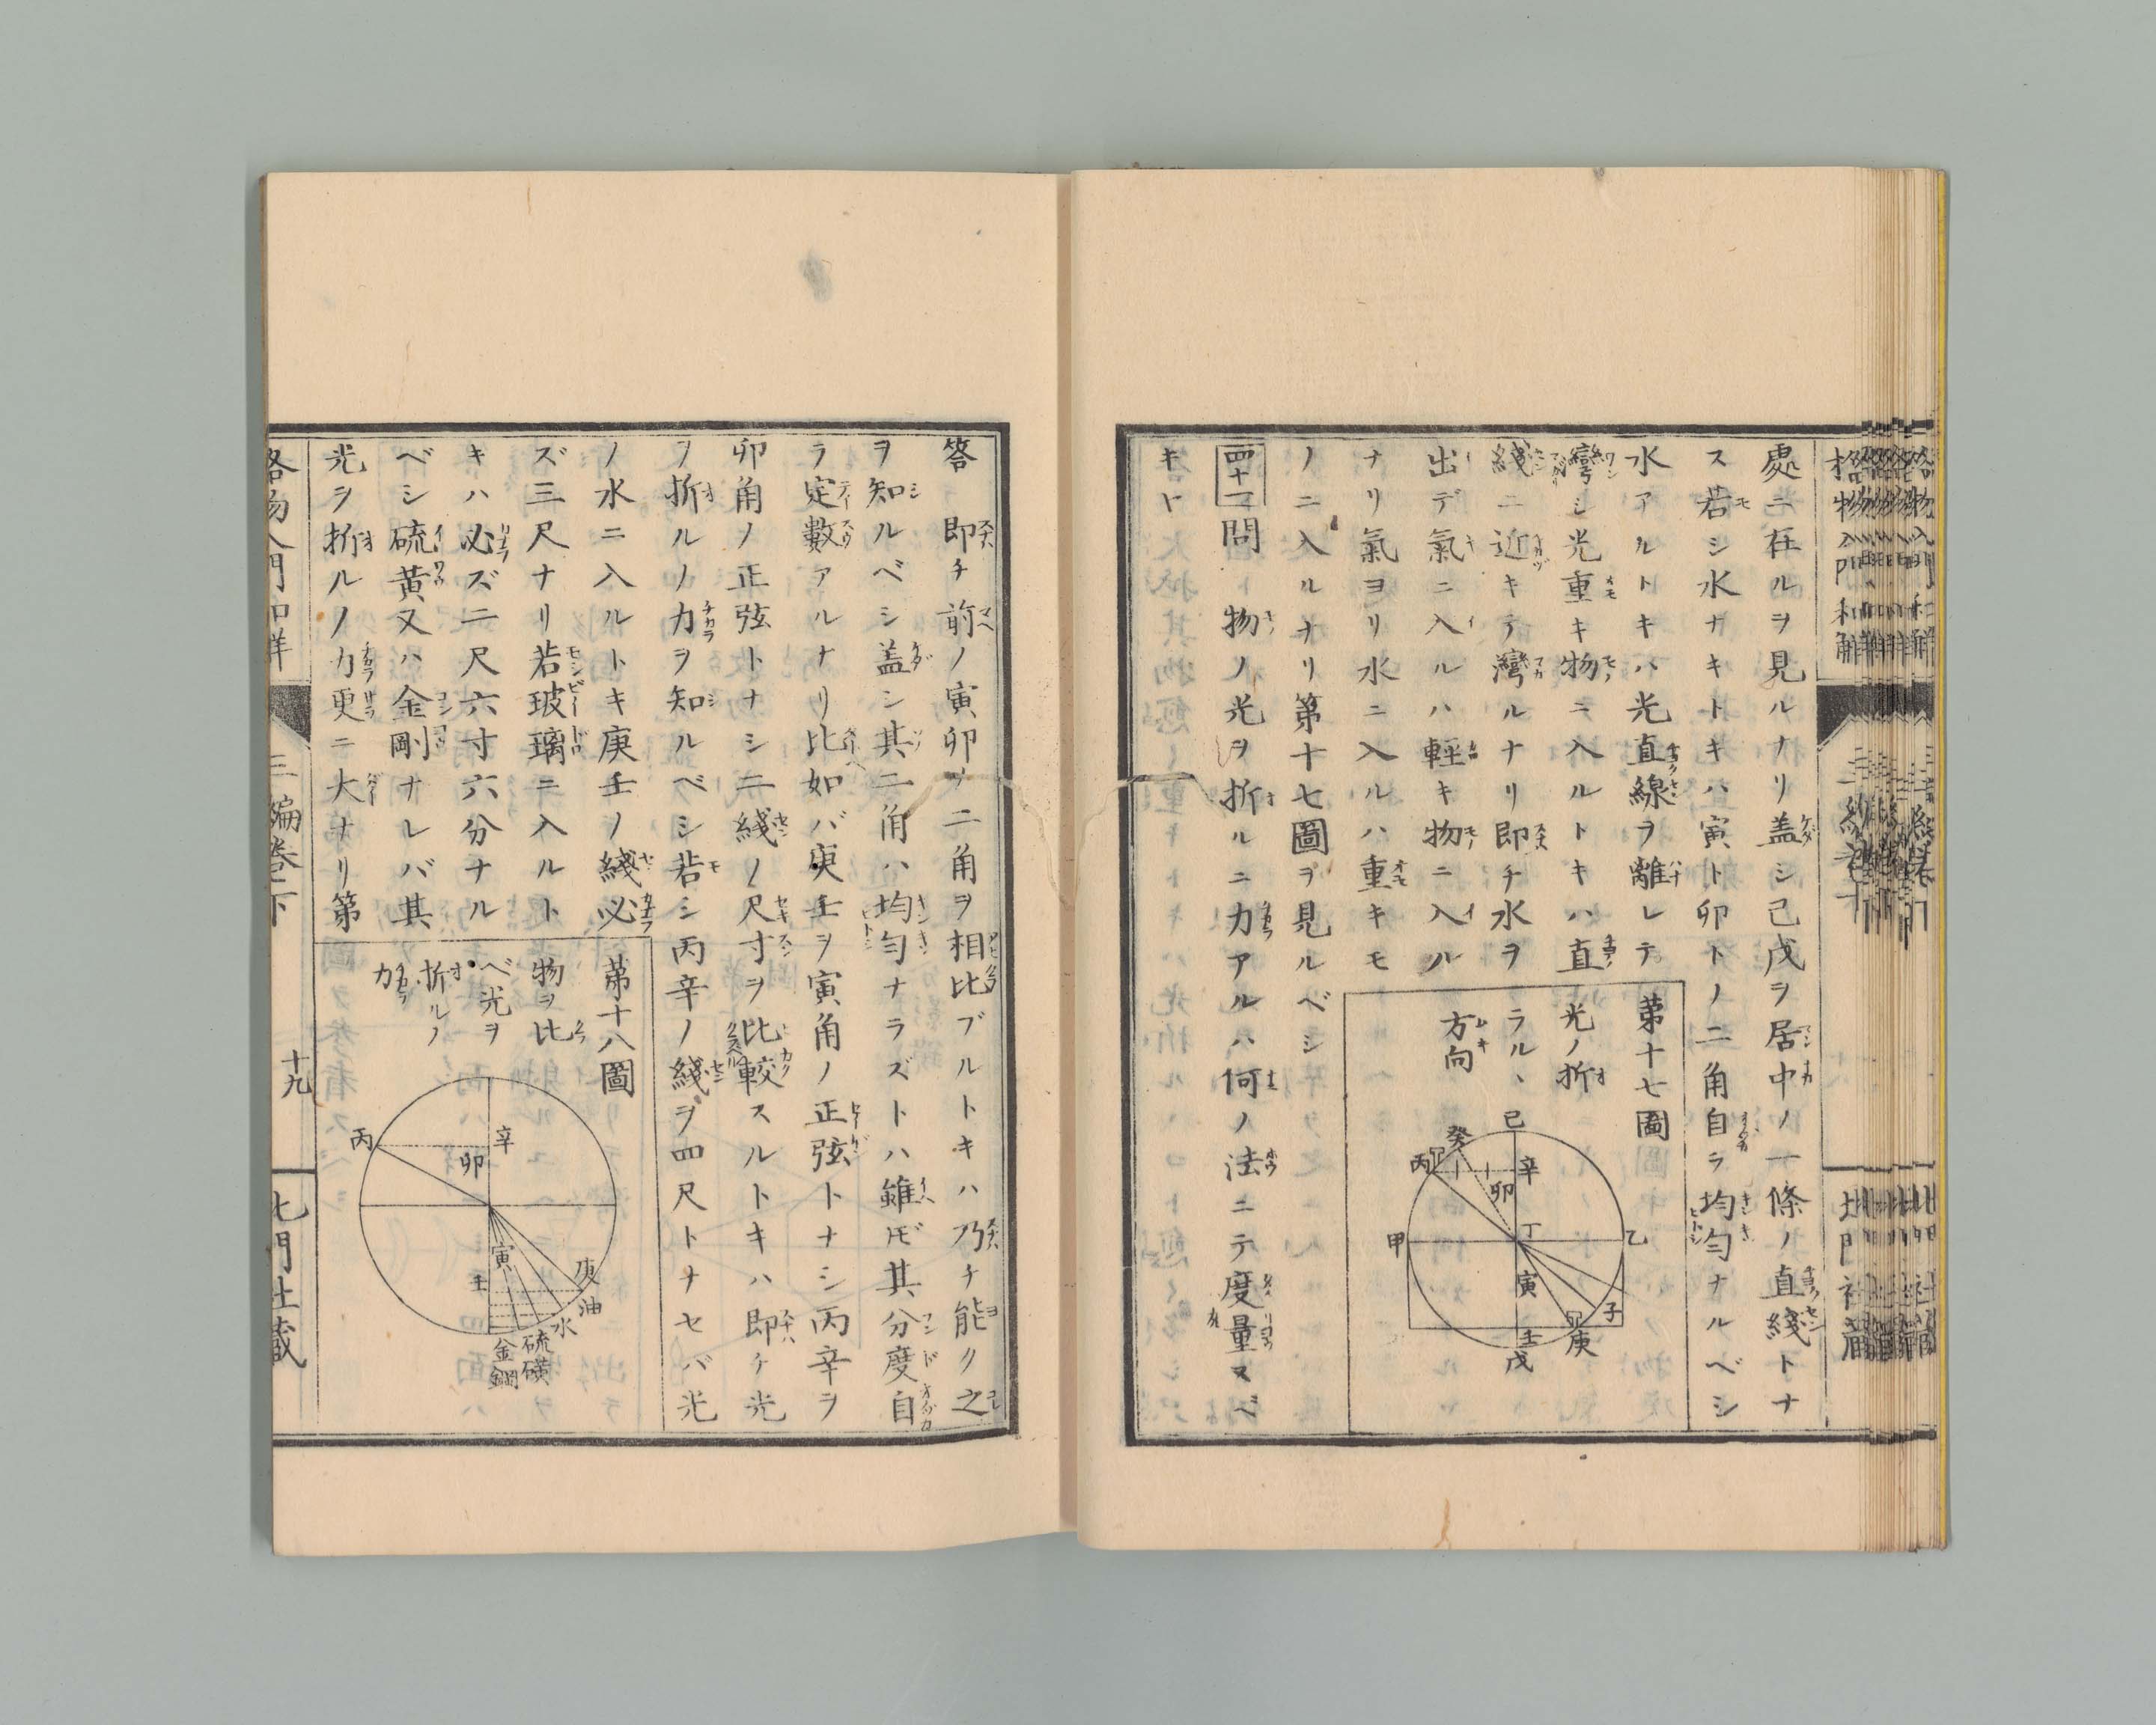 處ニ在ルヲ見ルナリ蓋シ己戊ヲ居中ノ一條ノ直綫トナ
ス若シ水ナキトキハ寅ト卯トノ二角自ラ均勻ナルベシ
水アルトキハ光直線ヲ離レテ
彎シ光重キ物ニ入ルトキハ直
綫ニ近キテ灣ルナリ即チ水ヲ
出デ氣ニ入ルハ輕キ物ニ入ル
ナリ氣ヨリ水ニ入ルハ重キモ
ノニ入ルナリ第十七圖ヲ見ルベシ
第十七圖
光ノ折
ラルヽ
方向
己
癸
丙
辛
卯
丁
甲
乙
寅
子
庚
壬
戊
四十一問 物ノ光ヲ折ルニ力アルハ何ノ法ニテ度量スベ
キト
答 即チ前ノ寅卯ヲ二角ヲ相比ブルトキハ乃チ能ク之
ヲ知ルベシ蓋シ其二角ハ均勻ナラズトハ雖𪜈其分度自
ラ定數アルナリ比如バ庚壬ヲ寅角ノ正弦トナシ丙辛ヲ
卯角ノ正弦トナシ二綫ノ尺寸ヲ比較スルトキハ即チ光
ヲ折ルノ力ヲ知ルベシ若シ丙辛ノ綫ヲ四尺トナセバ光
ノ水ニ入ルトキ庚壬ノ綫必
ズ三尺ナリ若玻璃ニ入ルト
キハ必ズ二尺六寸六分ナル
ベシ硫黄又ハ金剛ナレバ其
光ヲ折ルノ力更ニ大ナリ第
第十八圖
物ヲ比
ベ光ヲ
折ルノ
力
丙
辛
卯
寅
壬
庚
油
水
硫磺
金鋼
格物入門和解
三編卷下
十九
北門社藏